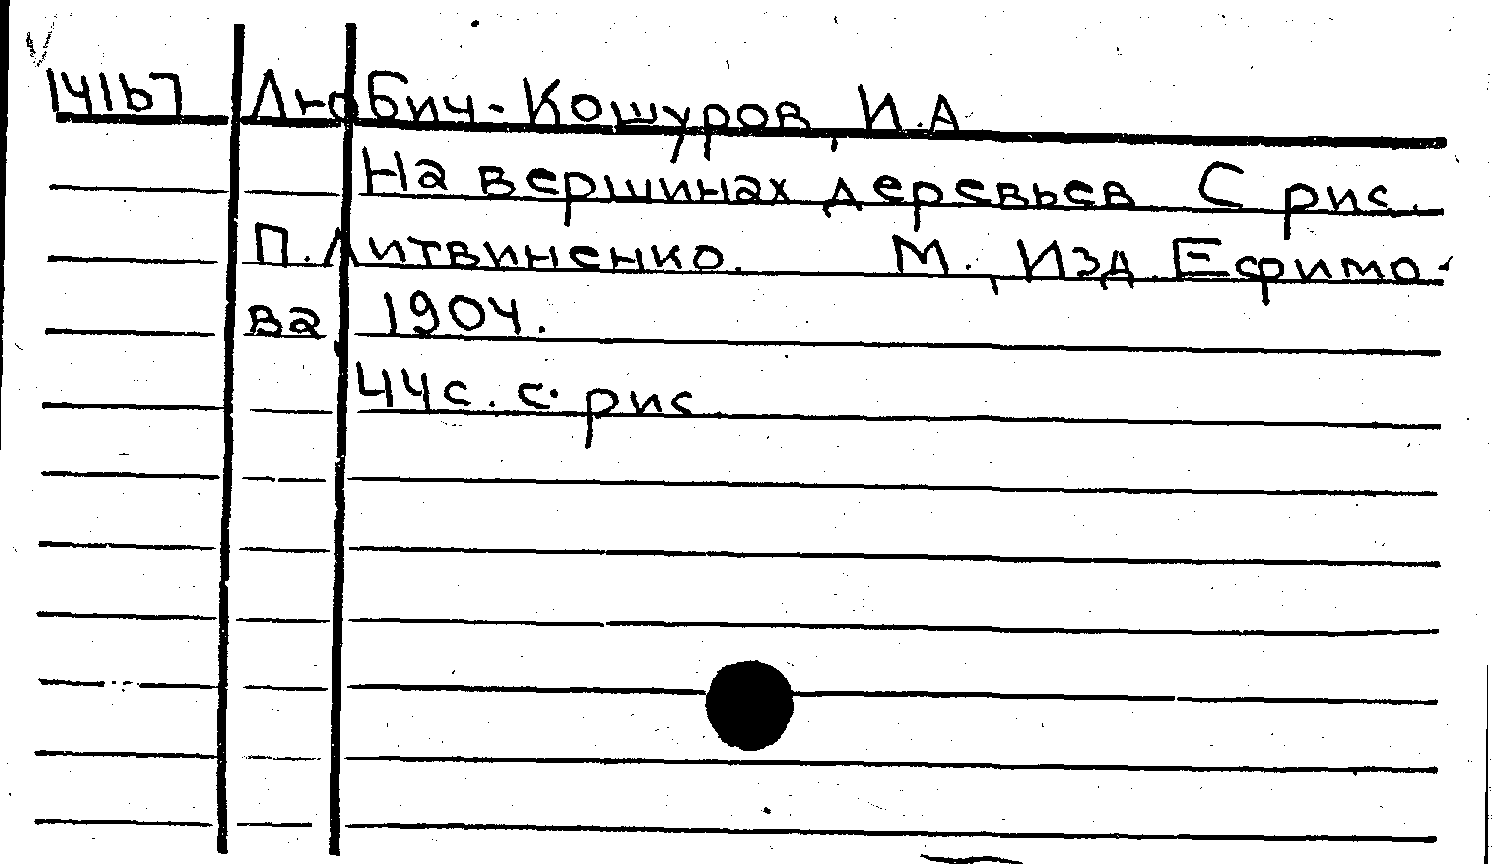 14167 Любич-Кошуров, И.А
На вершинах деревьев С рис.
П. Литвиненко. М., Изд. Ефимо-
ва 1904.
44с. с. рис